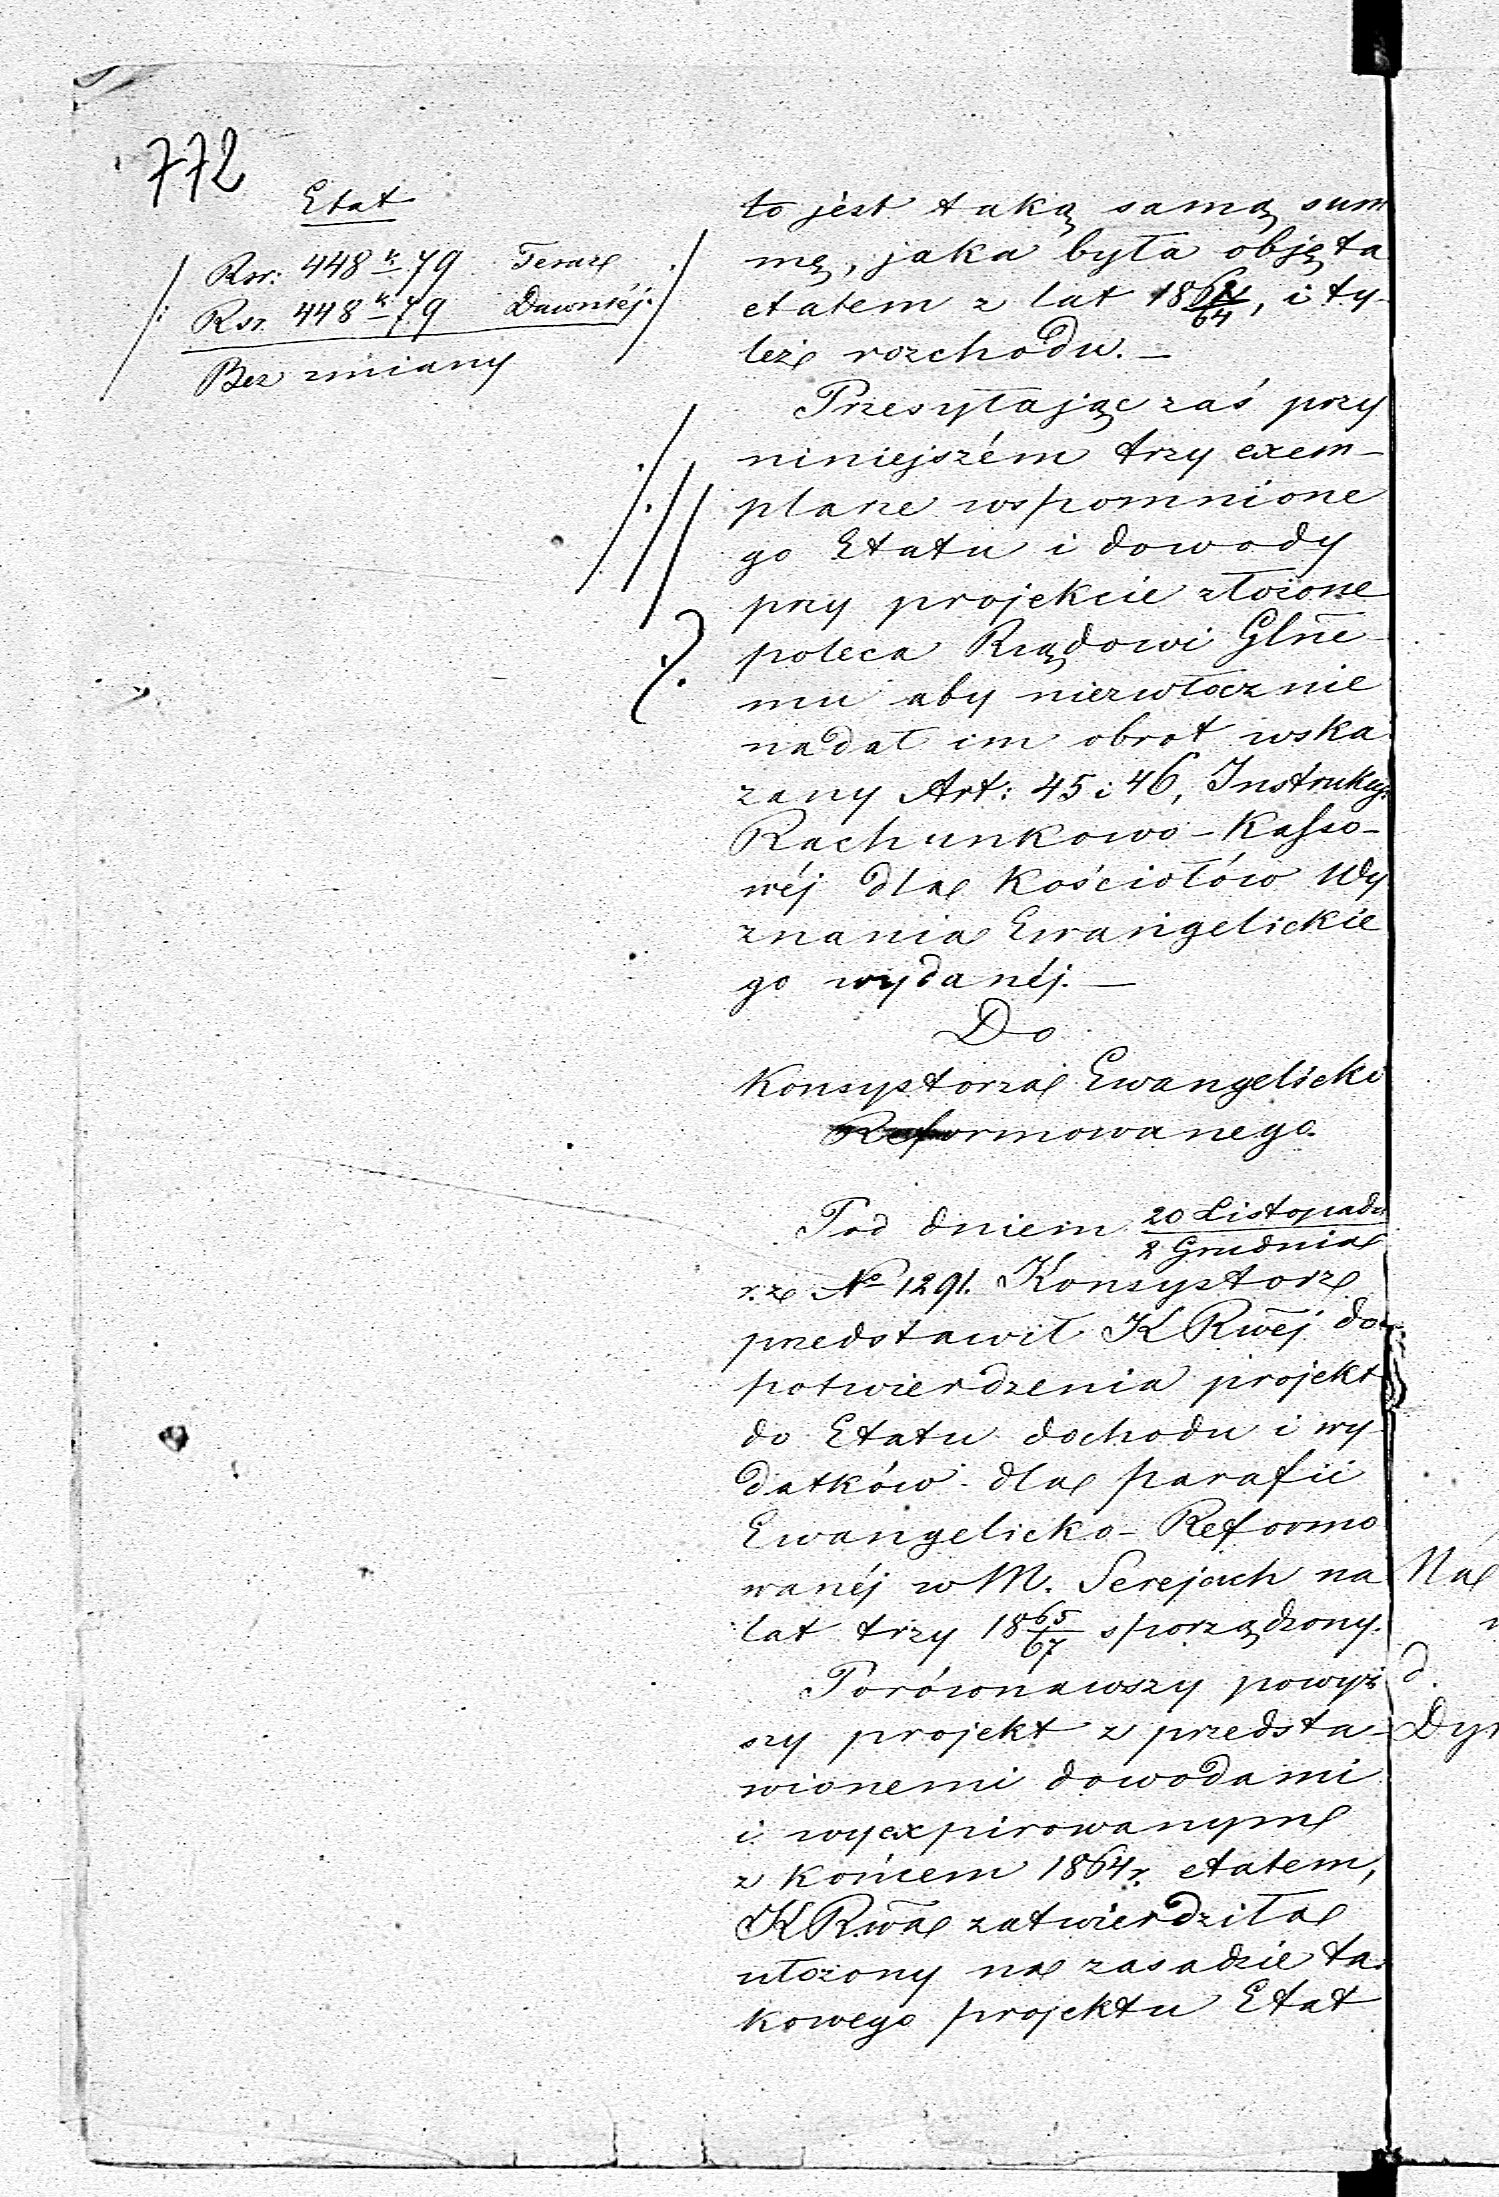 772
Etat
Rsr: 448 k. 79 Teraz
Rsr. 448 k. 79 Dawniéj.
Bez zmiany
to jest taką samą sum
mę, jaka była objęta
etatem z lat 1862/64, i ty-
leż rozchodu. —
Przesyłając zaś przy
niniejszém trzy exem-
plarze wspomnione
go Etatu i dowody
przy projekcie złożone
poleca Rządowi Glne-
mu aby niezwłocznie
nadał im obrot wska
zany Art: 45 i 46, Instrukcyi
Rachunkowo-Kasso-
wéj dla Kościołów Wy
znania Ewangelickie
go wydanéj. —
Do
Konsystorza Ewangelicko
Reformowanego.
Pod dniem 20 Listopada / 2 Grudnia
r.z No 1291. Konsystorz
przedstawił K Rwéj do
potwierdzenia projekt
do Etatu dochodu i wy-
datków dla parafii
Ewangelicko-Reformo
wanéj w M. Serejach na
lat trzy 1865/67 sporządzony.
Porównawszy powyż
szy projekt z przedsta-
wionemi dowodami
i wyexpirowanym
z końcem 1864 r. etatem,
K Rwa zatwierdziła
ułożony na zasadzie ta-
kowego projektu Etat
Na
d.
Dyr